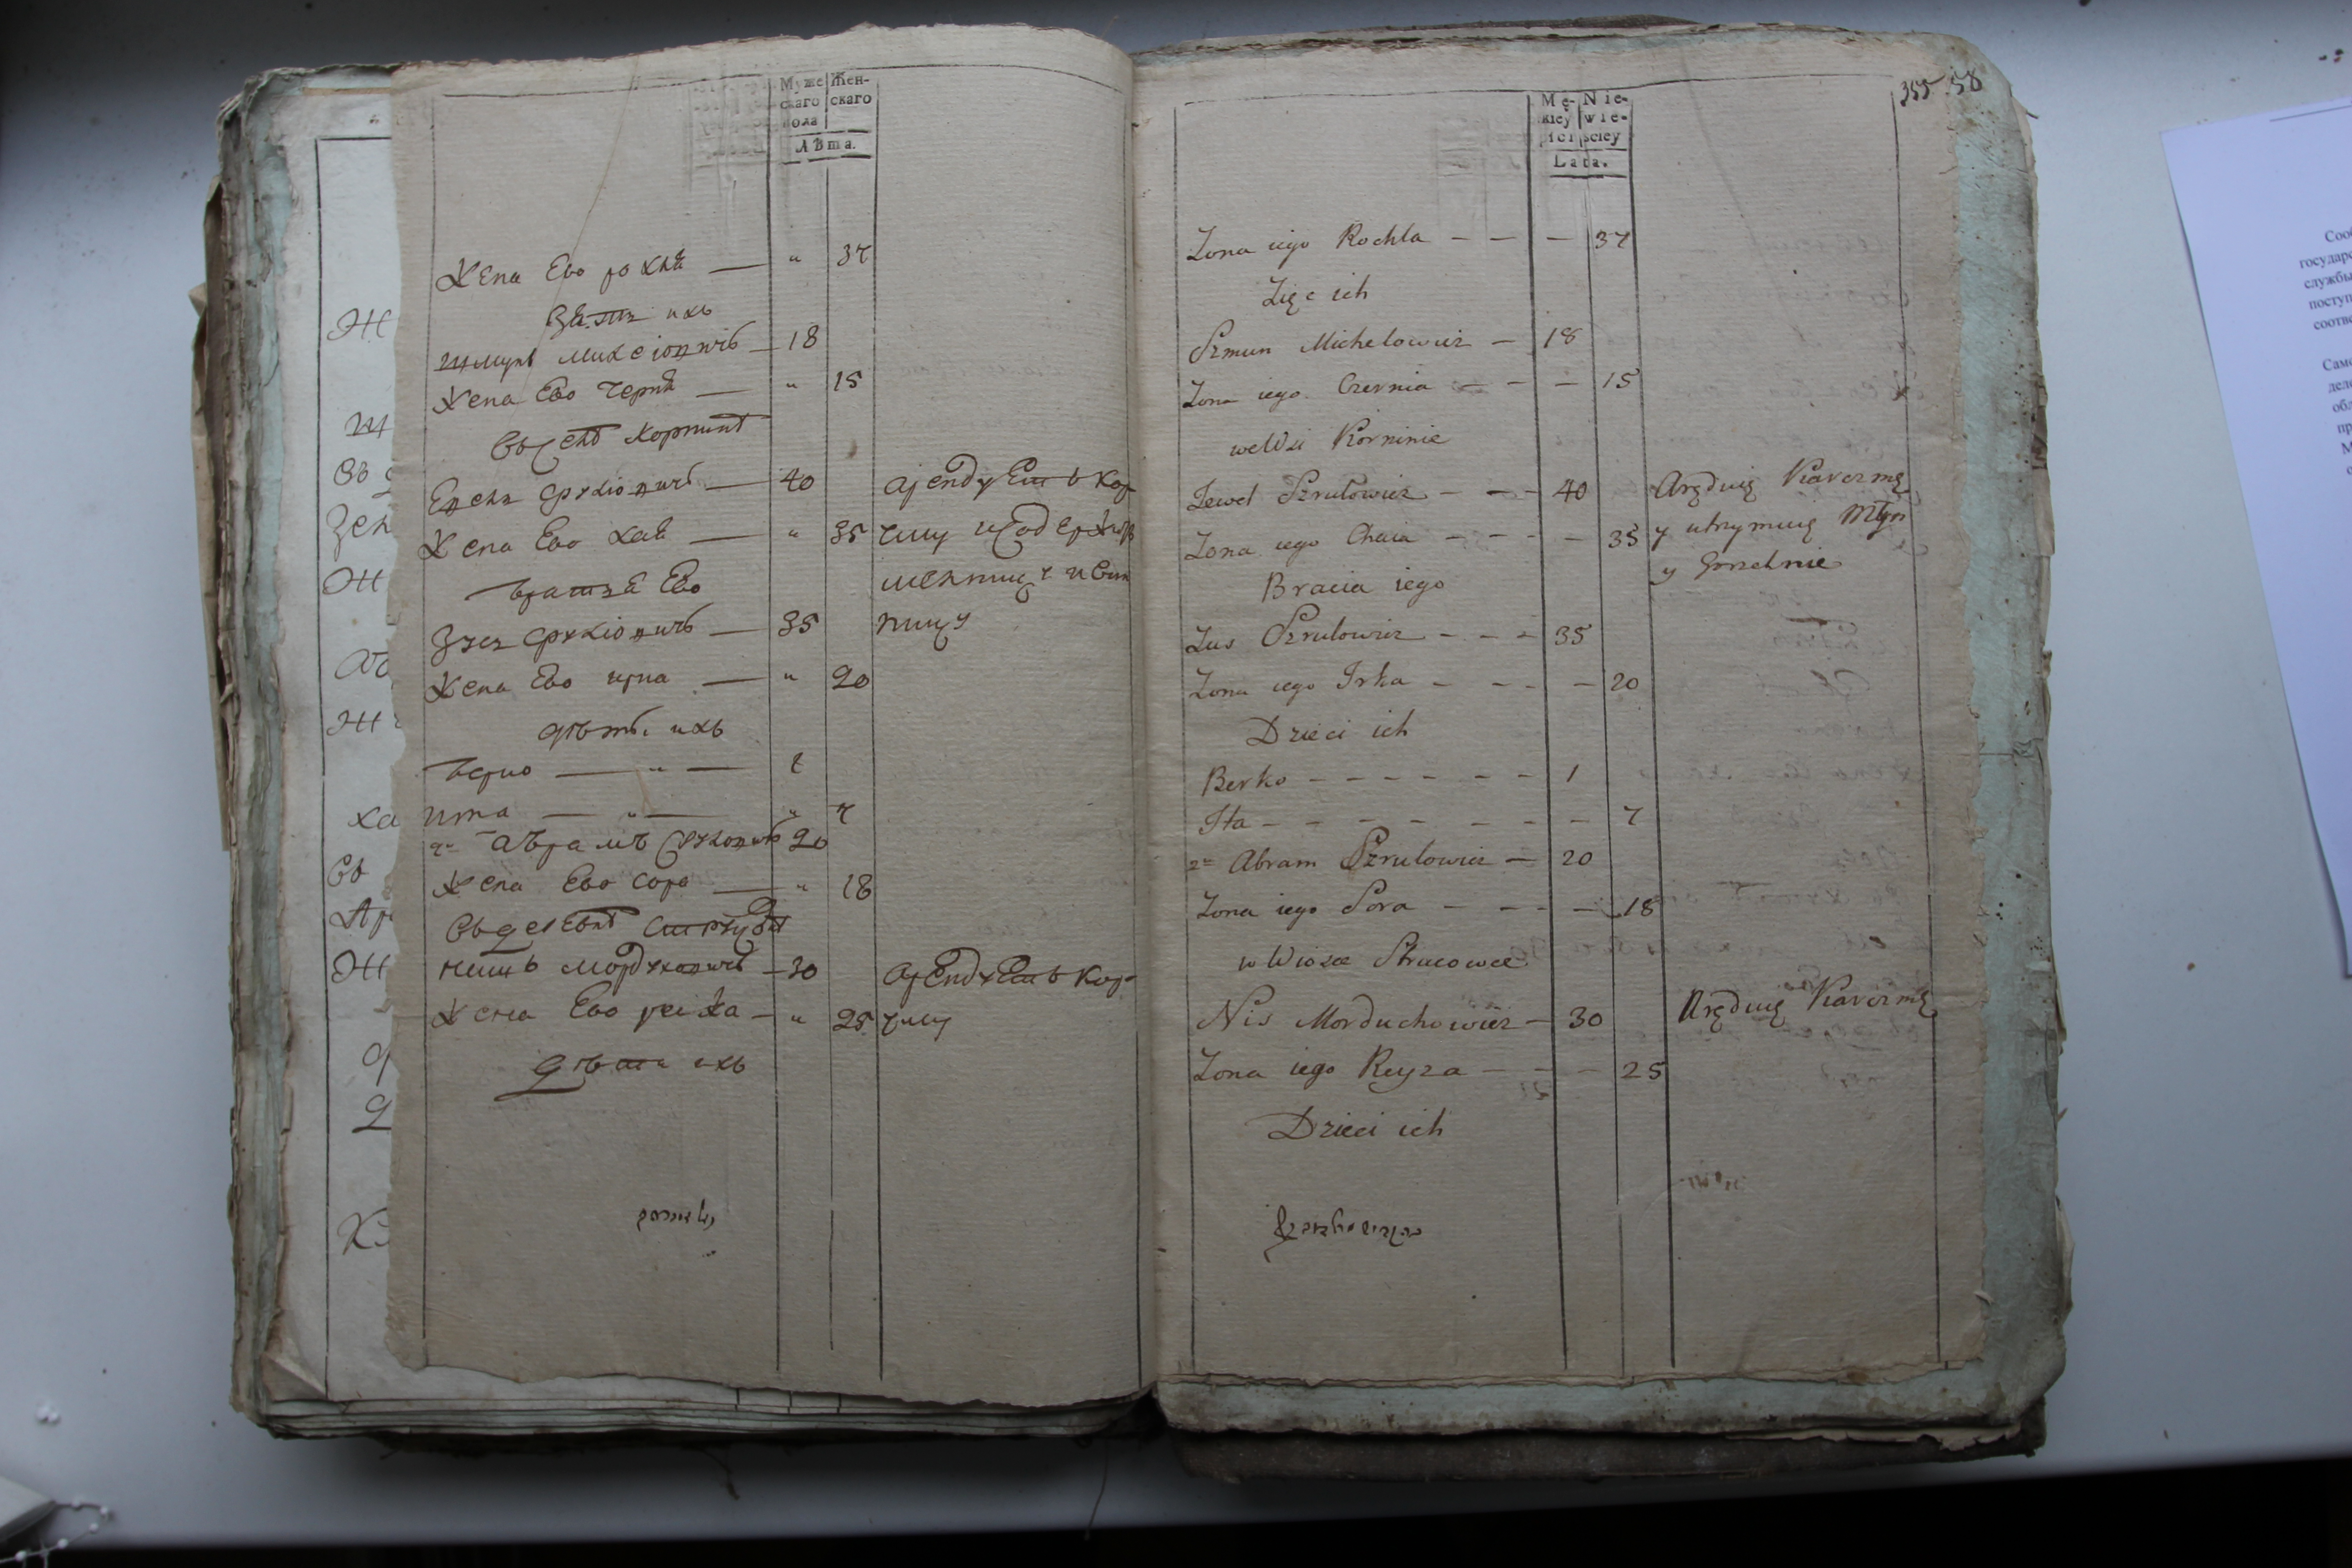 Муже
Жен-
скаго
скаго
пола
Лѣта.
Жена Ево рохля — " 37
Зять ихъ
шмунъ михелiовичъ — 18
Жена Ево Черня — " 15
Въ селѣ Корнинѣ
Евель срулiовичъ — 40 арендуетъ кор-
Жена Ево хая — " 35 чму и содержитъ
братья Ево мельницу и вин
Зусь срулiовичъ — 35 ницу
Жена Ево ирка — " 20
дѣти ихъ
берко — " — 1
ита — " — " 7
2й абрамъ срулiовичъ 20
Жена Ево сора — " 18
Въ деревнѣ
нишъ мордуховичъ — 30 арендуетъ кор-
Жена Ево рейза — " 25 чму
дѣти ихъ
355 58
Mę- Nie-
skiey wie-
ści ściey
Lata.
Zona iego Rochla — — — 37
Zięc ich
Szmun Michelowicz — 18
Zona iego Czernia — — — 15
we Wsi Korninie
Jewel Szrulowicz — — 40 Aręduię Karczmę
Zona iego Chaia — — — — 35 y utrzymuię Młyn
Bracia iego y Gorzelnie
Zus Szrulowicz — — — 35
Zona iego Irka — — — — 20
Dzieci ich
Berko — — — — — — 1
Ita — — — — — — — — 7
2re Abram Szrulowicz — 20
Zona iego Sora — — — — 18
w Wiosce Strucowce
Nis Morduchowicz — 30 Aręduię Karczmę
Zona iego Reyza — — — 25
Dzieci ich